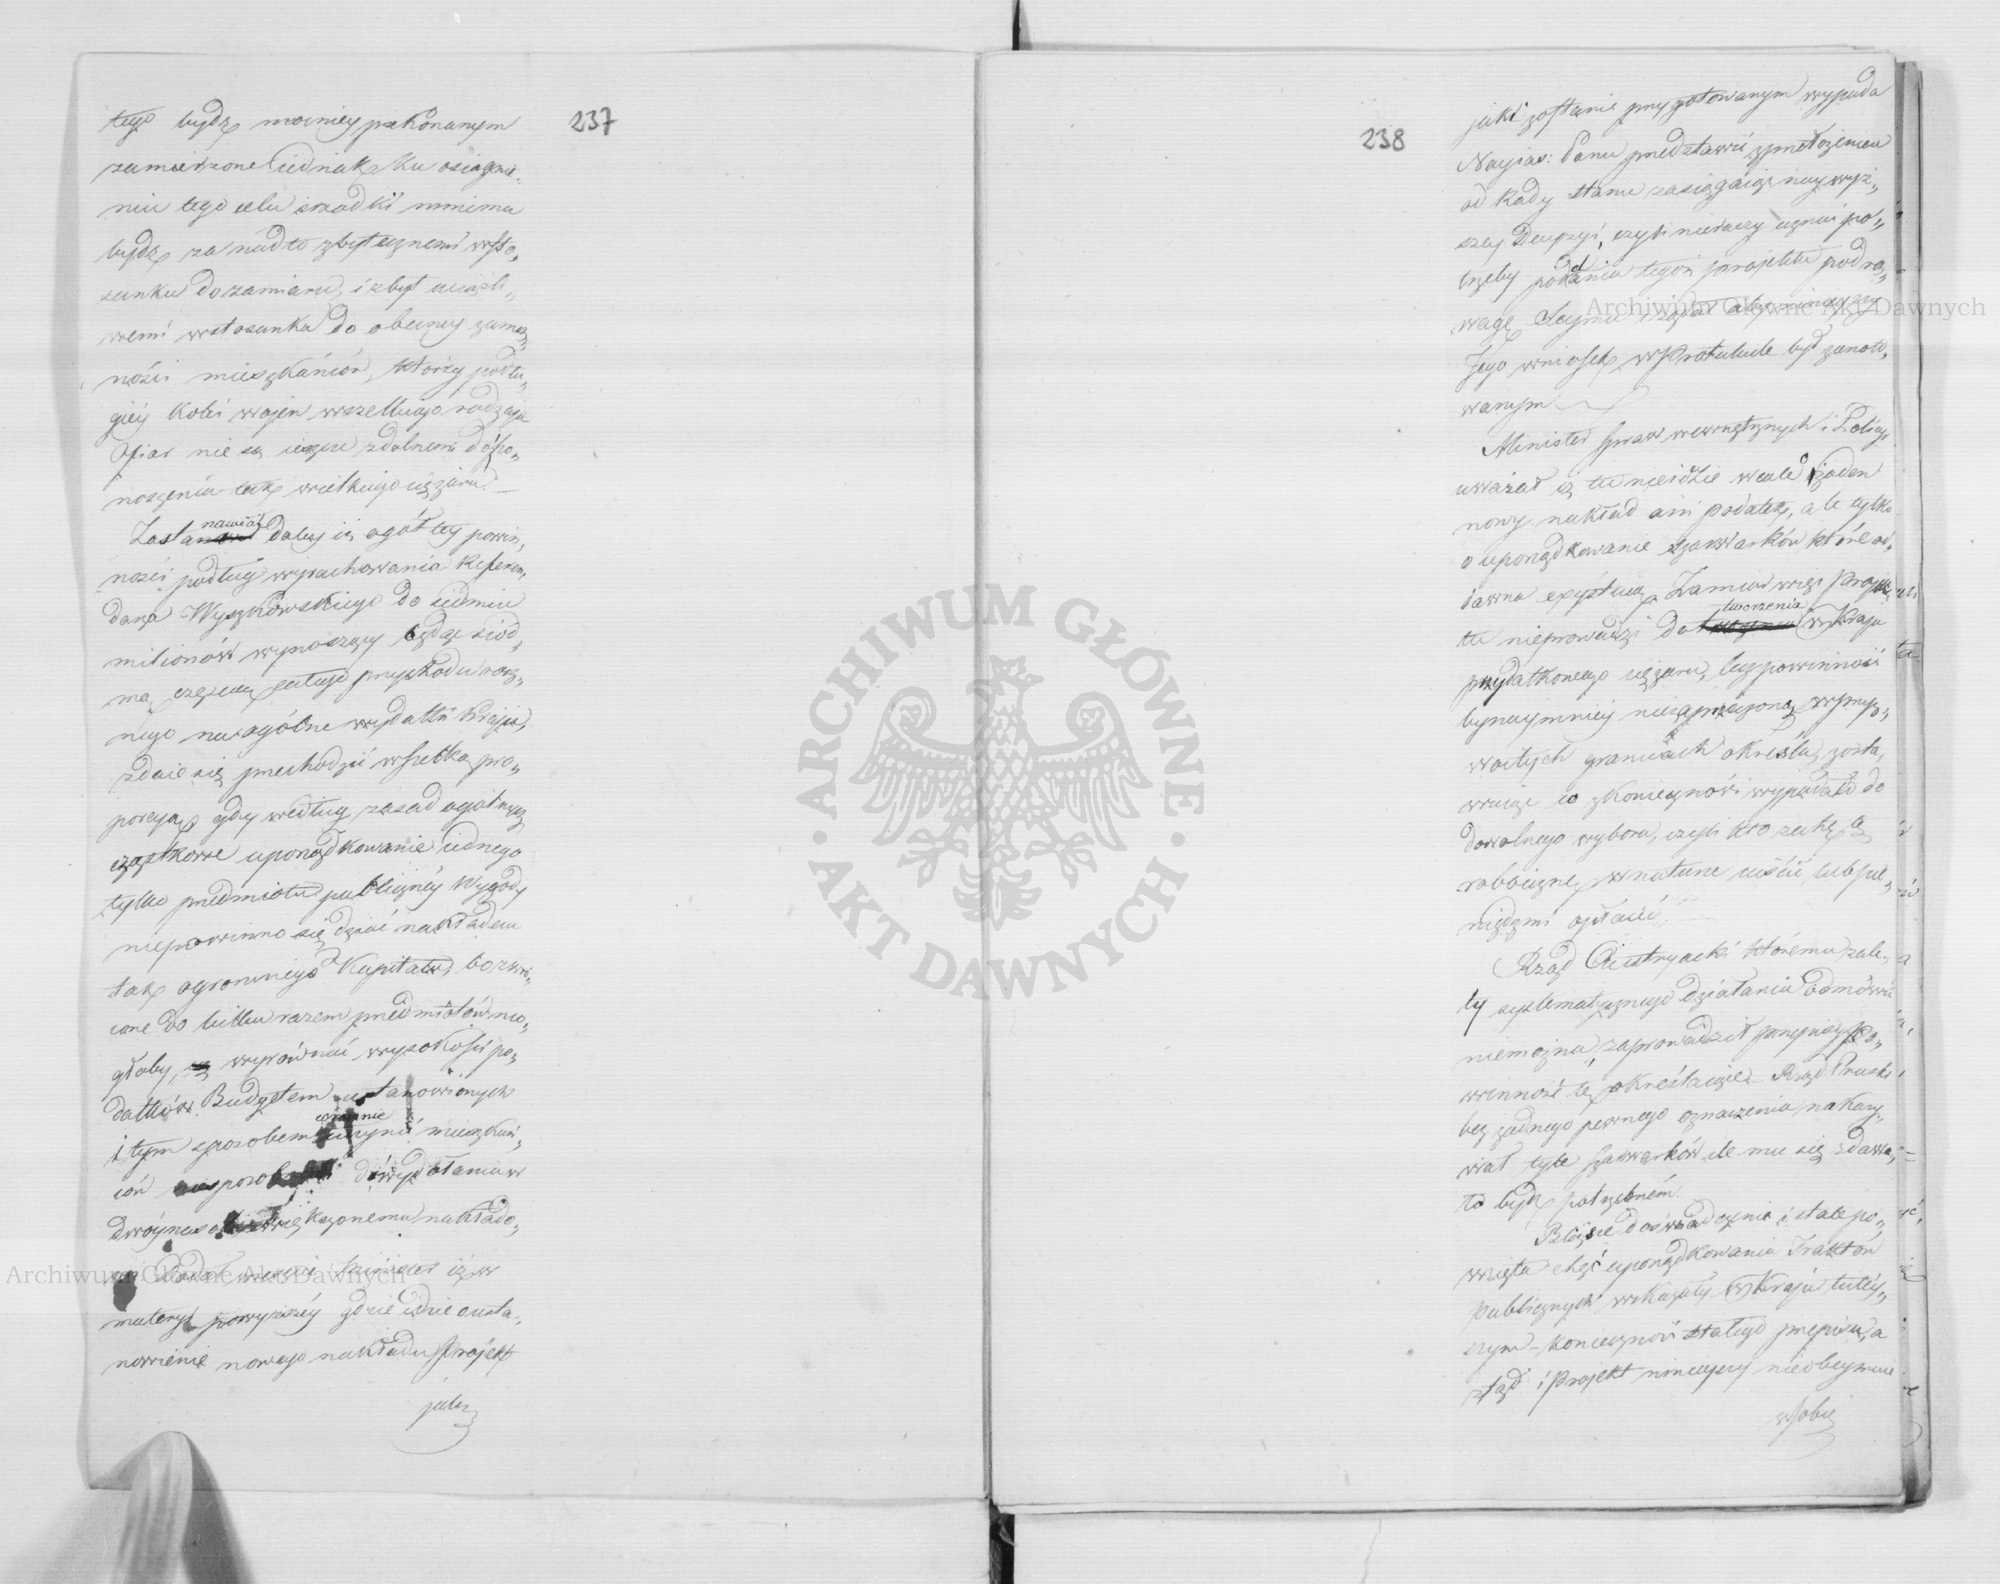 237
tego bydź mocniey przekonanym
zamierzone iednak ku osiągnie-
niu tego celu srzodki mniema
bydź za nadto zbytecznemi w sto-
sunku do zamiaru, i zbyt uciążli-
wemi w stosunku do obecney zamoż-
ności mieszkańców, którzy po dłu-
giey kolei woien wszelkiego rodzaju
ofiar nie są ieszcze zdolnemi do po-
noszenia tak wielkiego ciężaru. —
Zastanawiał daley iż ogół tey powin-
ności podług wyrachowania Referen-
darza Wyszkowskiego do siedmiu
milionów wynoszący będąc siód-
mą częscią całego przychodu rocz-
nego na ogólne wydatki kraju,
zdaie się przechodzić wszelką pro-
porcyą, gdy według zasad ogólnych
cząstkowe uporządkowanie iednego
tylko przedmiotu publiczney wygody
niepowinno się dziać nakładem
tak ogromnego kapitału, bo zwró-
cone do kilku razem przedmiotów mo-
głoby, wyrównać wysokości po-
datków Budżetem ustanowionych
i tym sposobem uczynić mieszkań-
ców do wydołania w
dwóynasób zwiększonemu nakłado-
wi. Dodał wreszcie Minister iż w
materyi powyższey gdzie idzie o usta-
nowienie nowego nakładu Projekt
jaki
238
jaki zostanie przygotowanym wypada
Nayias: Panu przedstawić z przełożeniem
od Rady Stanu zasięgaiąc naywyż-
szey Decyzyi, czyli nieraczy uznać po-
trzeby podania tegoż projektu pod roz-
wagę Seymu i żądał aby ninieyszy
Jego wniosek w Protokule był zanoto-
wanym
Minister Spraw wewnętrznych i Policyi
uważał iż tu nieidzie wcale o żaden
nowy nakład ani podatek, ale tylko
o uporządkowanie szarwarków które od-
dawna exystuią. Zamiar więc Projek-
tu nieprowadzi do tworzenia w Kraju
przydatkowego ciężaru, lecz powinność
bynaymniey niezaprzeczoną w przy-
zwoitych granicach określa, zosta-
wuiąc co z konieczności wypadało do
dowolnego wyboru, czyli kto zechce tę
robociznę w naturze uiścić lub pie-
niędzmi opłacić.
Rząd Austryacki któremu zale-
ty systematycznego działania odmówić
niemożna, zaprowadził przepisy po-
winność tę określaiące. Rząd Pruski
bez żadnego pewnego oznaczenia nakazy-
wał tyle szarwarków ile mu się zdawa-
ło bydź potrzebném.
Bliższe doświadczenie i stale po-
wzięta chęć uporządkowania Traktów
publicznych wskazały w Kraju tutey-
szym konieczność stałego przepisu, a
ztąd i Projekt ninieyszy nieobeymuie
w sobie
Archiwum Główne Akt Dawnych
Archiwum Główne Akt Dawnych
ARCHIWUM GŁÓWNE · AKT DAWNYCH ·